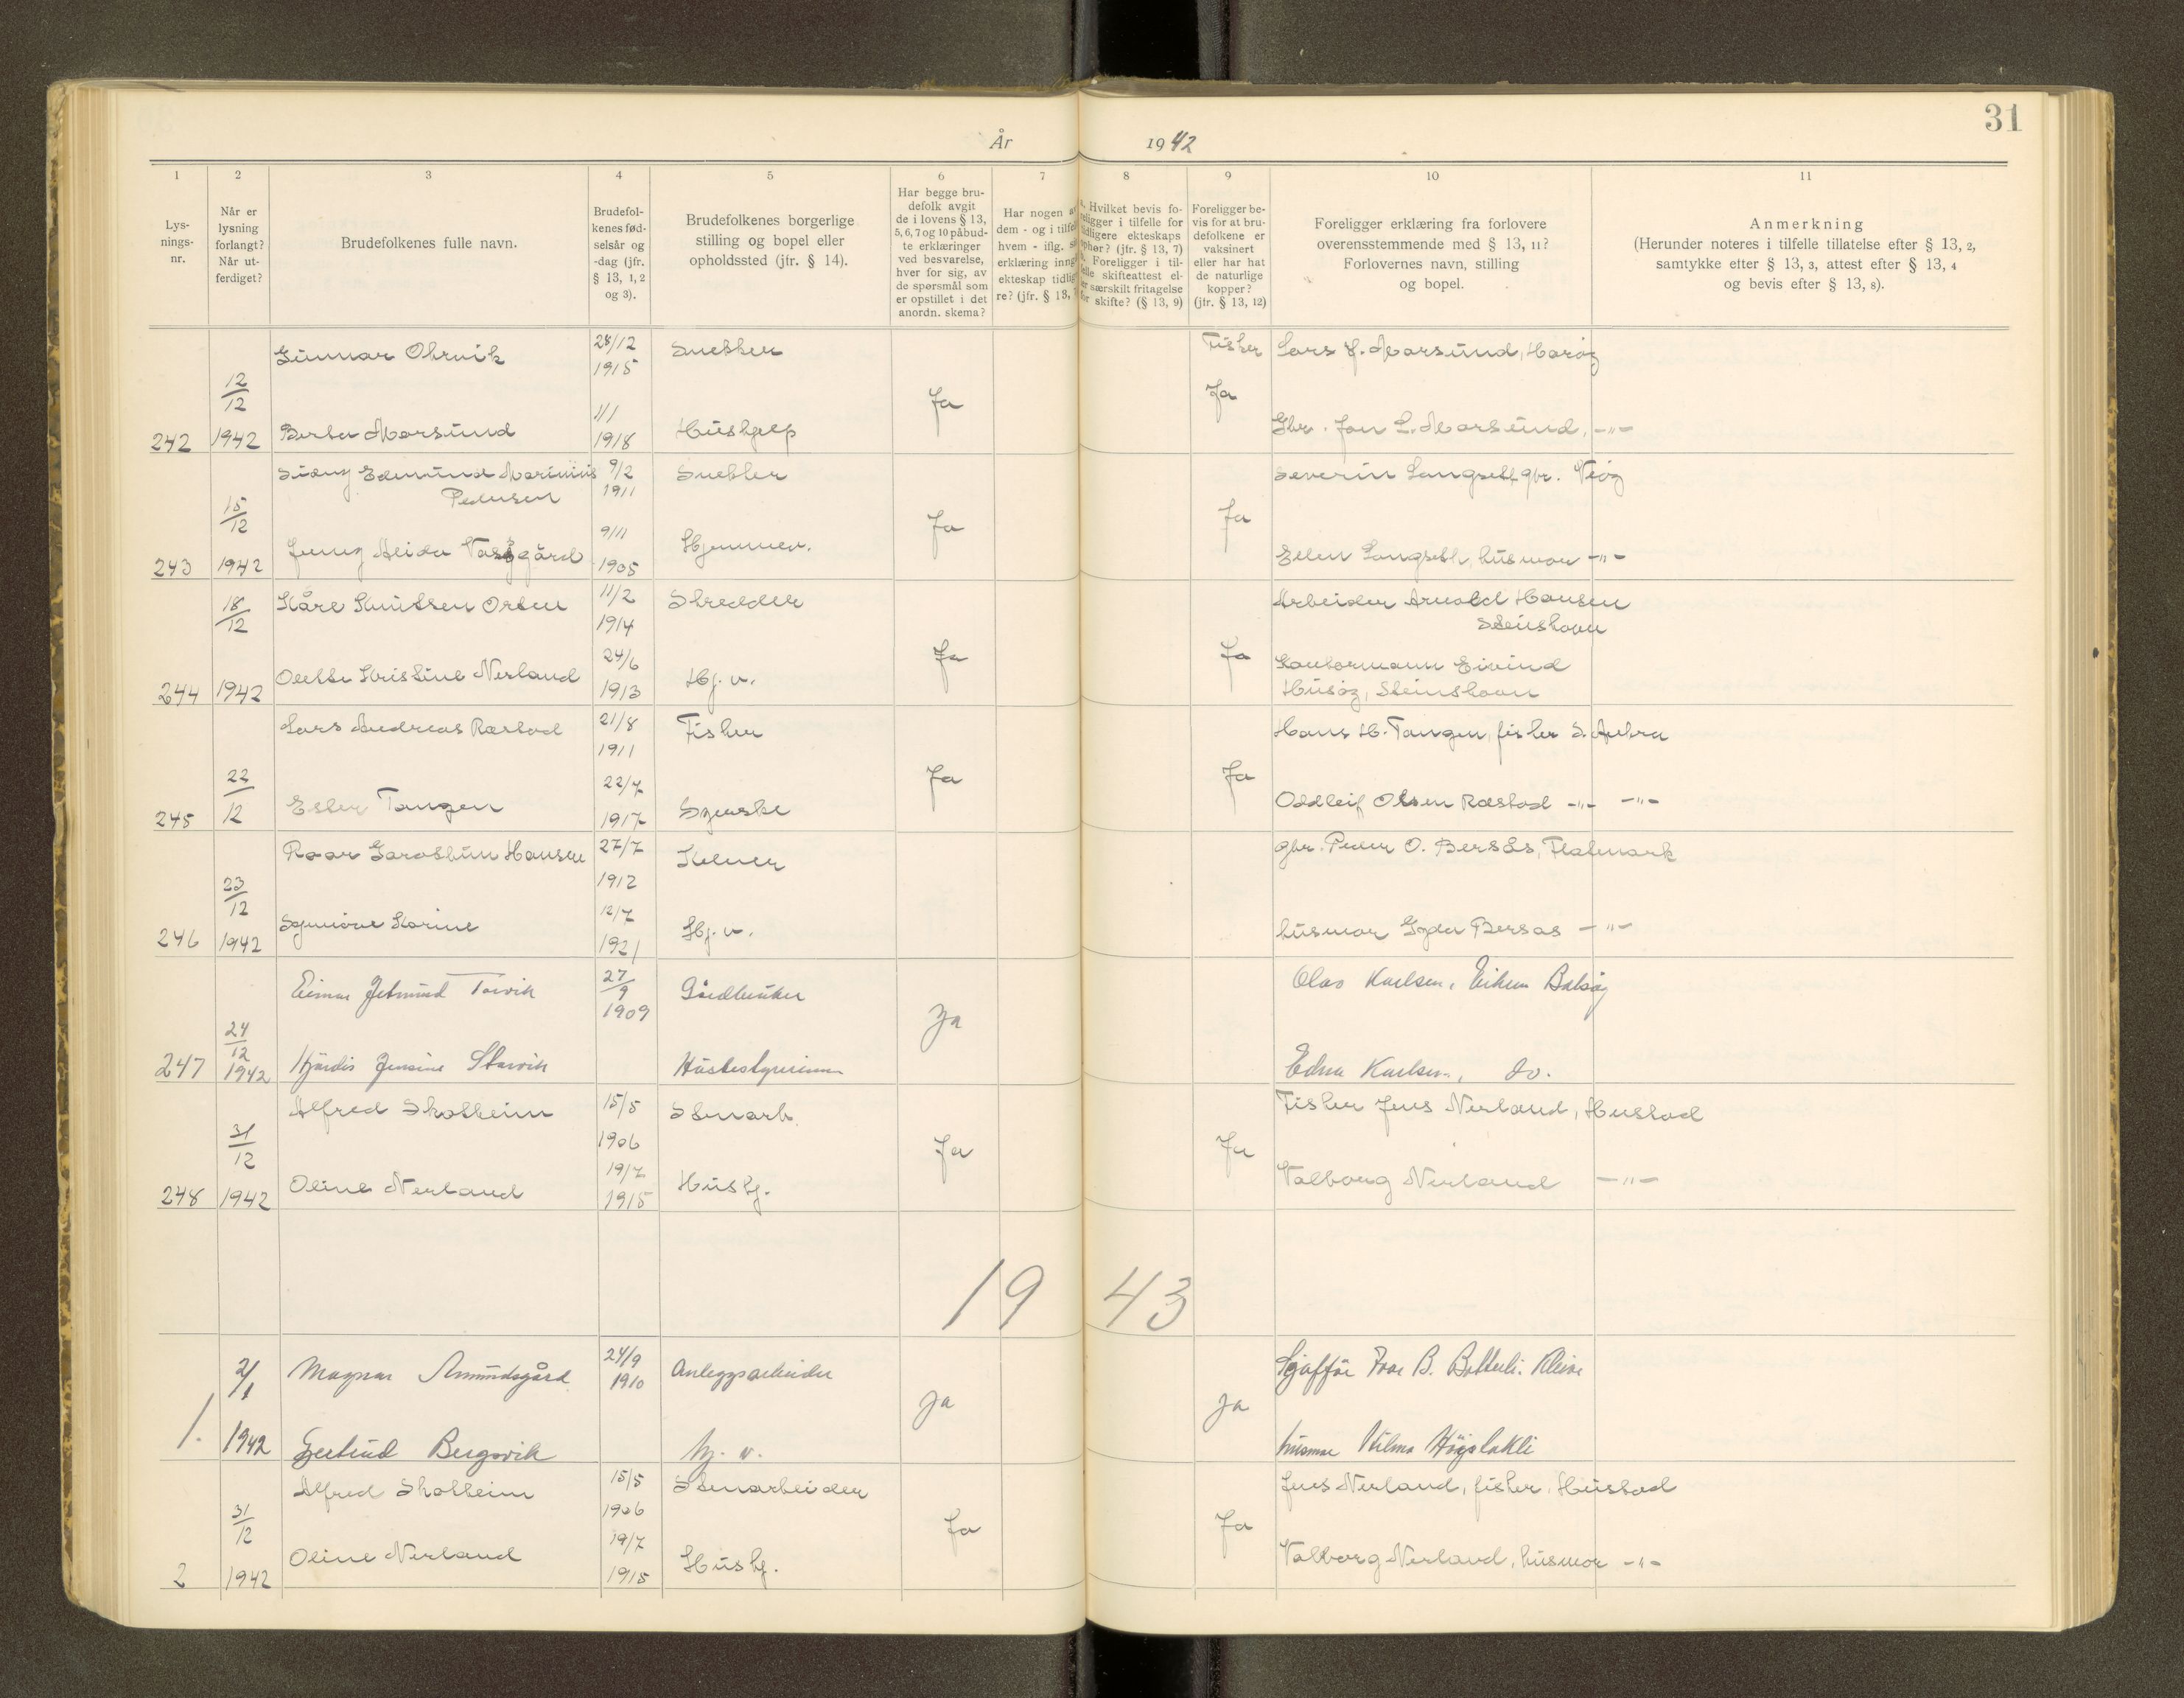 31
År 1942
1 2 3 4 5 6 7 8 9 10 11
Lys-
nings-
nr.
Når er
lysning
forlangt?
Når ut-
ferdiget?
Brudefolkenes fulle navn.
Brudefol-
kenes fød-
selsår og
-dag (jfr.
§ 13, 1, 2
og 3).
Brudefolkenes borgerlige
stilling og bopel eller
opholdssted (jfr. § 14).
Har begge bru-
defolk avgit
de i lovens § 13,
5, 6, 7 og 10 påbud-
te erklæringer
ved besvarelse,
hver for sig, av
de spørsmål som
er opstillet i det
anordn. skema?
Har nogen a
dem - og i tilfe
hvem - iflg. s
erklæring inng
ekteskap tidlig
re? (jfr. § 13,
a. Hvilket bevis fo-
religger i tilfelle for
tidligere ekteskaps
ophør? (jfr. § 13, 7)
b. Foreligger i til-
felle skifteattest el-
er særskilt fritagelse
for skifte? (§ 13, 9)
Foreligger be-
vis for at bru-
defolkene er
vaksinert
eller har hat
de naturlige
kopper?
(jfr. § 13, 12)
Foreligger erklæring fra forlovere
overensstemmende med § 13, 11?
Forlovernes navn, stilling
og bopel.
Anmerkning
(Herunder noteres i tilfelle tillatelse efter § 13, 2,
samtykke efter § 13, 3, attest efter § 13, 4
og bevis efter § 13, 8).
Gunnar Ohrvik 28/12 1915 Snekker Fisker Lars J. Marsund, Harøy
12/12 Ja Ja
242 1942 Berta Marsund 1/1 1918 Hushjelp Gbr. Jon L. Marsund, -"-
Sidny Edmund Marinius 9/2 1911 Snekker Severin Langseth gbr. Veøy
Pedersen
15/12 Ja Ja
243 1942 Jenny Alida Vasgård 9/11 1905 Hjemmev. Ellen Langseth, husmor -"-
18/12 Kåre Knutsen Orten 11/2 1914 Skredder Arbeider Arnold Hansen
Steinshavn
Ja Ja
244 1942 Olette Kristine Nerland 24/6 1913 Hj. v. Kontormann Eivind
Husøy, Steinshavn
Lars Andreas Ræstad 21/8 1911 Fisker Hans H. Tangen, fisker S. Aukra
22/12 Ja Ja
245 Ester Tangen 22/7 1917 Syerske Oddleif Olsen Ræstad -"- -"-
Roar Garostun Hansen 27/7 1912 Kelner gbr. Peder O. Bersås, Flatmark
23/12
246 1942 Synnøve Karine 12/7 1921 Hj. v. husmor Gyda Bersås -"-
Einar Jetmund Torvik 27/9 1909 Gårdbruker Olav Karlsen, Eikrem Bolsøy
24/12 Ja
247 1942 Hjördis Jensine Starvik Husbestyrerinne Edna Karlsen, do.
Alfred Skotheim 15/5 1906 Stenarb. Fisker Jens Nerland, Hustad
31/12 Ja Ja
248 1942 Oline Nerland 19/7 1915 Hushj. Valborg Nerland -"-
1943
2/1 Magnar Amundsgård 24/9 1910 Anleggsarbeider Sjåffør Ivar B. Botterli. Kleive
Ja Ja
1. 1942 Gertrud Bergsvik hj. v. husmor Vilma
Alfred Skotheim 15/5 1906 Stenarbeider Jens Nerland, fisker, Hustad
31/12 Ja Ja
2 1942 Oline Nerland 19/7 1915 Hushj. Valborg Nerland, husmor -"-